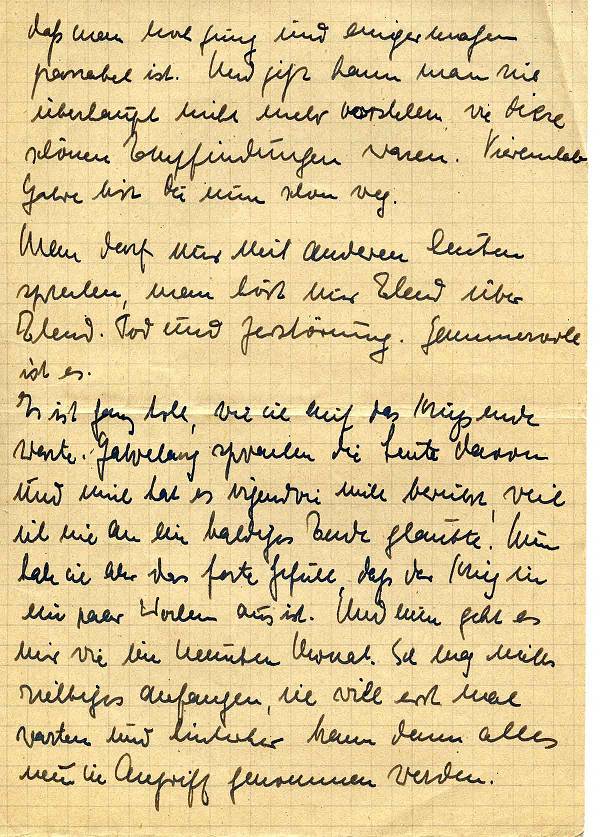 daß man noch jung und einigermaßen
passabel ist. Und jetzt kann man sie
überhaupt nicht mehr vorstellen, wie diese
schönen Empfindungen waren. Viereinhalb
Jahre bist du nun schon weg.
Man darf nur mit anderen Leuten
sprechen, man hört nur Elend über
Elend. Tod und Zerstörung. Jammervoll
ist es.
Es ist ganz toll, wie ich auf das Kriegsende
warte. Jahrelang sprachen die Leute davon
und mich hat es irgendwie nicht berührt, weil
ich nie an ein baldiges Ende glaubte! Nun
habe ich aber das feste Gefühl, daß der Krieg in
ein paar Wochen aus ist. Und nun geht es
mir wie im neunten Monat. Ich mag nichts
richtiges anfangen, ich will erst mal
warten und hinterher kann dann alles
neu in Angriff genommen werden.